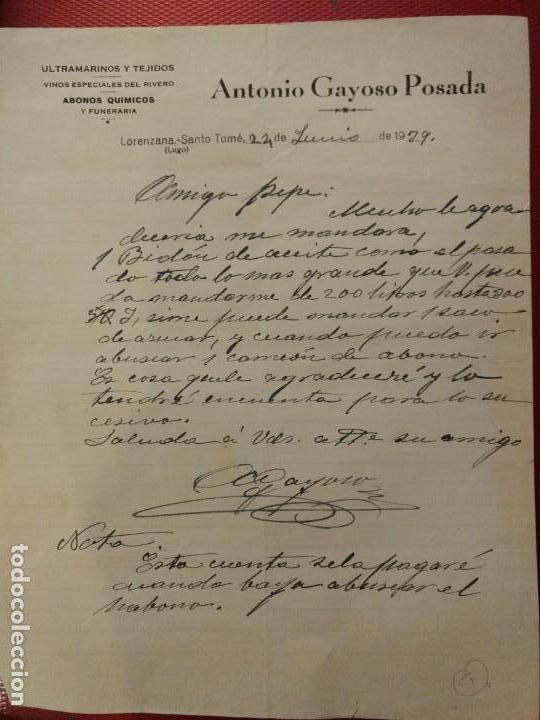 ULTRAMARINOS Y TEJIDOS
VINOS ESPECIALES DEL RIVERO
ABONOS QUIMICOS
Y FUNERARIA
Antonio Gayoso Posada
Lorenzana.-Santo Tomé, 24 de Junio de 1939.
(Lugo)
Amigo Pepe:
Mucho le agra
deceria me mandara,
1 Bidón de aceite como el pasa
do todo lo mas grande que V. pue
da mandarme de 200 litros hasta 300
si me puede mandar 1 saco
de azucar, y cuando puedo ir
abuscar 1 cameón de abono.
Es cosa quele agradeceré y lo
tendré encuenta para lo su
cesivo.
Saluda á Vds. a su amigo
Gayoso
Nota
Esta cuenta sela pagaré
cuando baya abuscar el
habono.
todocoleccion